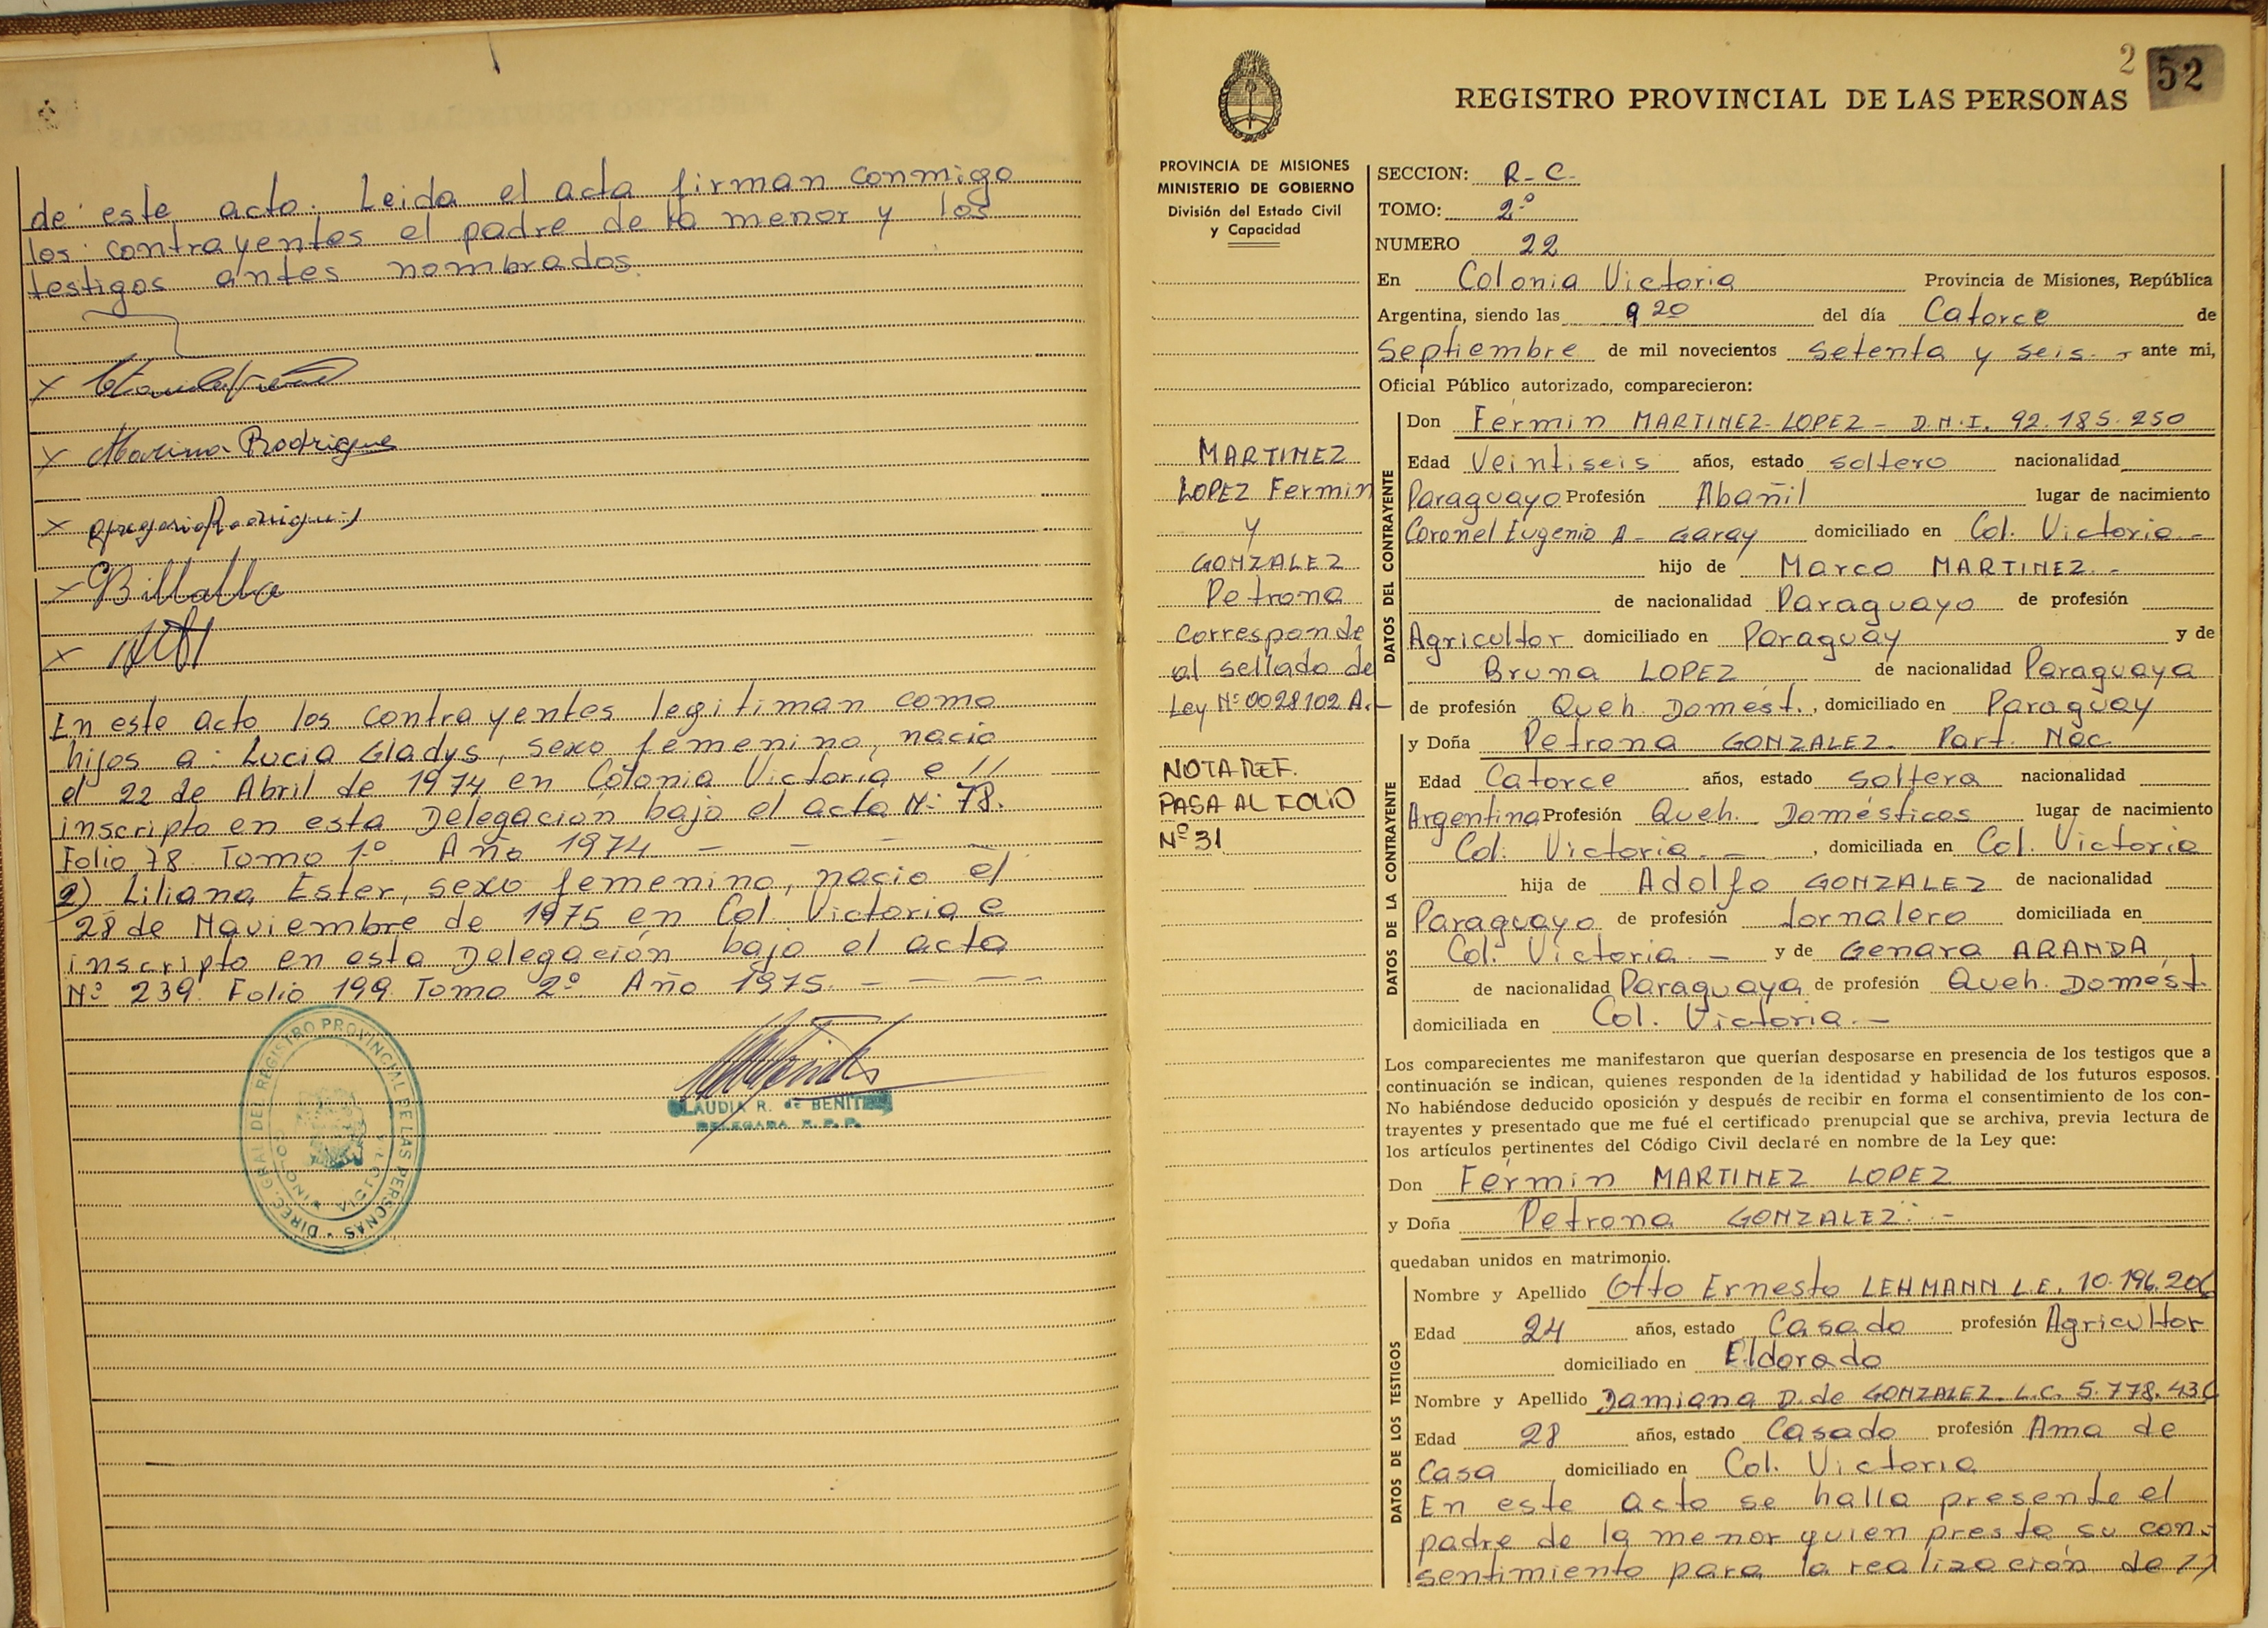 de este acto. Leida el acta firman conmigo
los contrayentes el padre de la menor y los
testigos antes nombrados.
x
x Marina Rodrigue
x Rodriguez
x Billalba
x
En este acto los contrayentes legitiman como
hijos a: Lucia Gladys, sexo femenino, nacio
el 22 de Abril de 1974 en Colonia Victoria e //
inscripto en esta Delegación bajo el acta Nº 78.
Folio 78 Tomo 1º Año 1974 — — — —
2) Liliana Ester, sexo femenino, nacio el
28 de Noviembre de 1975 en Col. Victoria e
inscripto en esta Delegación bajo el acta
Nº 239. Folio 199 Tomo 2º Año 1975. — — — —
DIREC. GRAL DEL REGISTRO PROVINCIAL DE LAS PERSONAS
VICTORIA
CLAUDIA R. de BENITEZ
DELEGADA R. P. P.
2 52
REGISTRO PROVINCIAL DE LAS PERSONAS
PROVINCIA DE MISIONES
MINISTERIO DE GOBIERNO
División del Estado Civil
y Capacidad
MARTINEZ
LOPEZ Fermin
y
GONZALEZ
Petrona
Corresponde
al sellado de
Ley Nº 0028102 A.-
NOTA REF.
PASA AL FOLIO
Nº 31
SECCION: R-C.
TOMO: 2º
NUMERO 22
En Colonia Victoria Provincia de Misiones, República
Argentina, siendo las 9 20 del día Catorce de
Septiembre de mil novecientos setenta y seis.- ante mi,
Oficial Público autorizado, comparecieron:
DATOS DEL CONTRAYENTE
Don Fermin MARTINEZ LOPEZ - D.N.I. 92.185.250
Edad Veintiseis años, estado soltero nacionalidad
Paraguayo Profesión Abañil lugar de nacimiento
Coronel Eugenio A- Garay domiciliado en Col. Victoria -
hijo de Marco MARTINEZ. -
de nacionalidad Paraguayo de profesión
Agricultor domiciliado en Paraguay y de
Bruna LOPEZ de nacionalidad Paraguaya
de profesión Queh. Domést., domiciliado en Paraguay
DATOS DE LA CONTRAYENTE
y Doña Petrona GONZALEZ- Part. Nac.
Edad Catorce años, estado soltera nacionalidad
Argentina Profesión Queh. Domésticos lugar de nacimiento
Col. Victoria. -, domiciliada en Col. Victoria
hija de Adolfo GONZALEZ de nacionalidad
Paraguayo de profesión Jornalero domiciliada en
Col. Victoria. - y de Genara ARANDA,
de nacionalidad Paraguaya de profesión Queh. Domést.
domiciliada en Col. Victoria. -
Los comparecientes me manifestaron que querían desposarse en presencia de los testigos que a
continuación se indican, quienes responden de la identidad y habilidad de los futuros esposos.
No habiéndose deducido oposición y después de recibir en forma el consentimiento de los con-
trayentes y presentado que me fué el certificado prenupcial que se archiva, previa lectura de
los artículos pertinentes del Código Civil declaré en nombre de la Ley que:
Don Fermin MARTINEZ LOPEZ
y Doña Petrona GONZALEZ. -
quedaban unidos en matrimonio.
DATOS DE LOS TESTIGOS
Nombre y Apellido Otto Ernesto LEHMANN L.E. 10.196.206
Edad 24 años, estado Casado profesión Agricultor
domiciliado en Eldorado
Nombre y Apellido Damiana D. de GONZALEZ. L.C. 5.778.436
Edad 28 años, estado Casado profesión Ama de
Casa domiciliado en Col. Victoria
En este acto se halla presente el
padre de la menor quien presta su con-
sentimiento para la realización de //